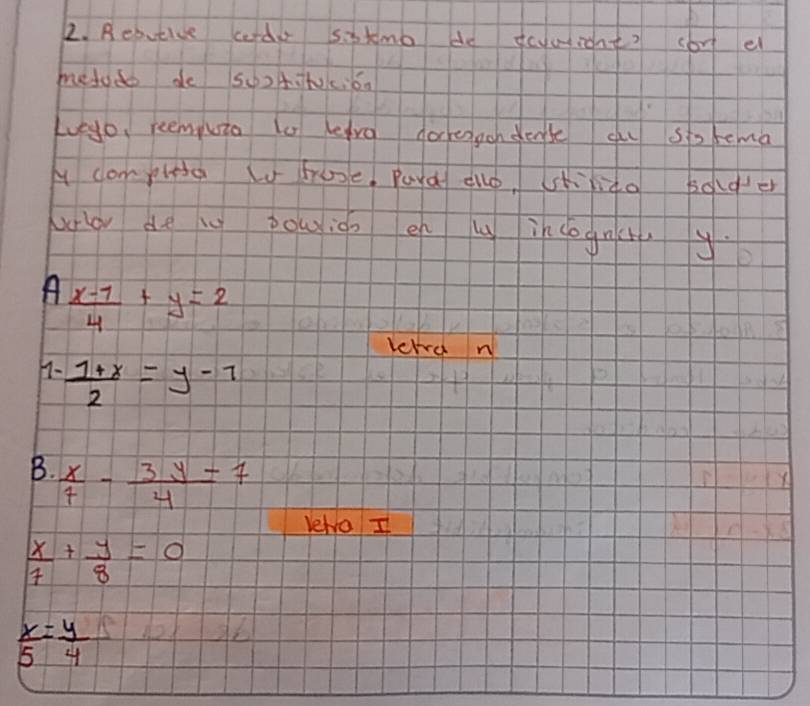 2. Resuelve cada sistema de ecuaciones con el
metodo de sustitución
Luego, reemplaza la letra correspondiente al sistema
y completa la frase. Para ello, utiliza
valor de la solución en la incognita y.
A x-1/4 + y = 2
letra n
1 - 1+x/2 = y - 1
B. x/7 - 3y/4 = 7
letra I
x/7 + y/8 = 0
x/5 = y/4